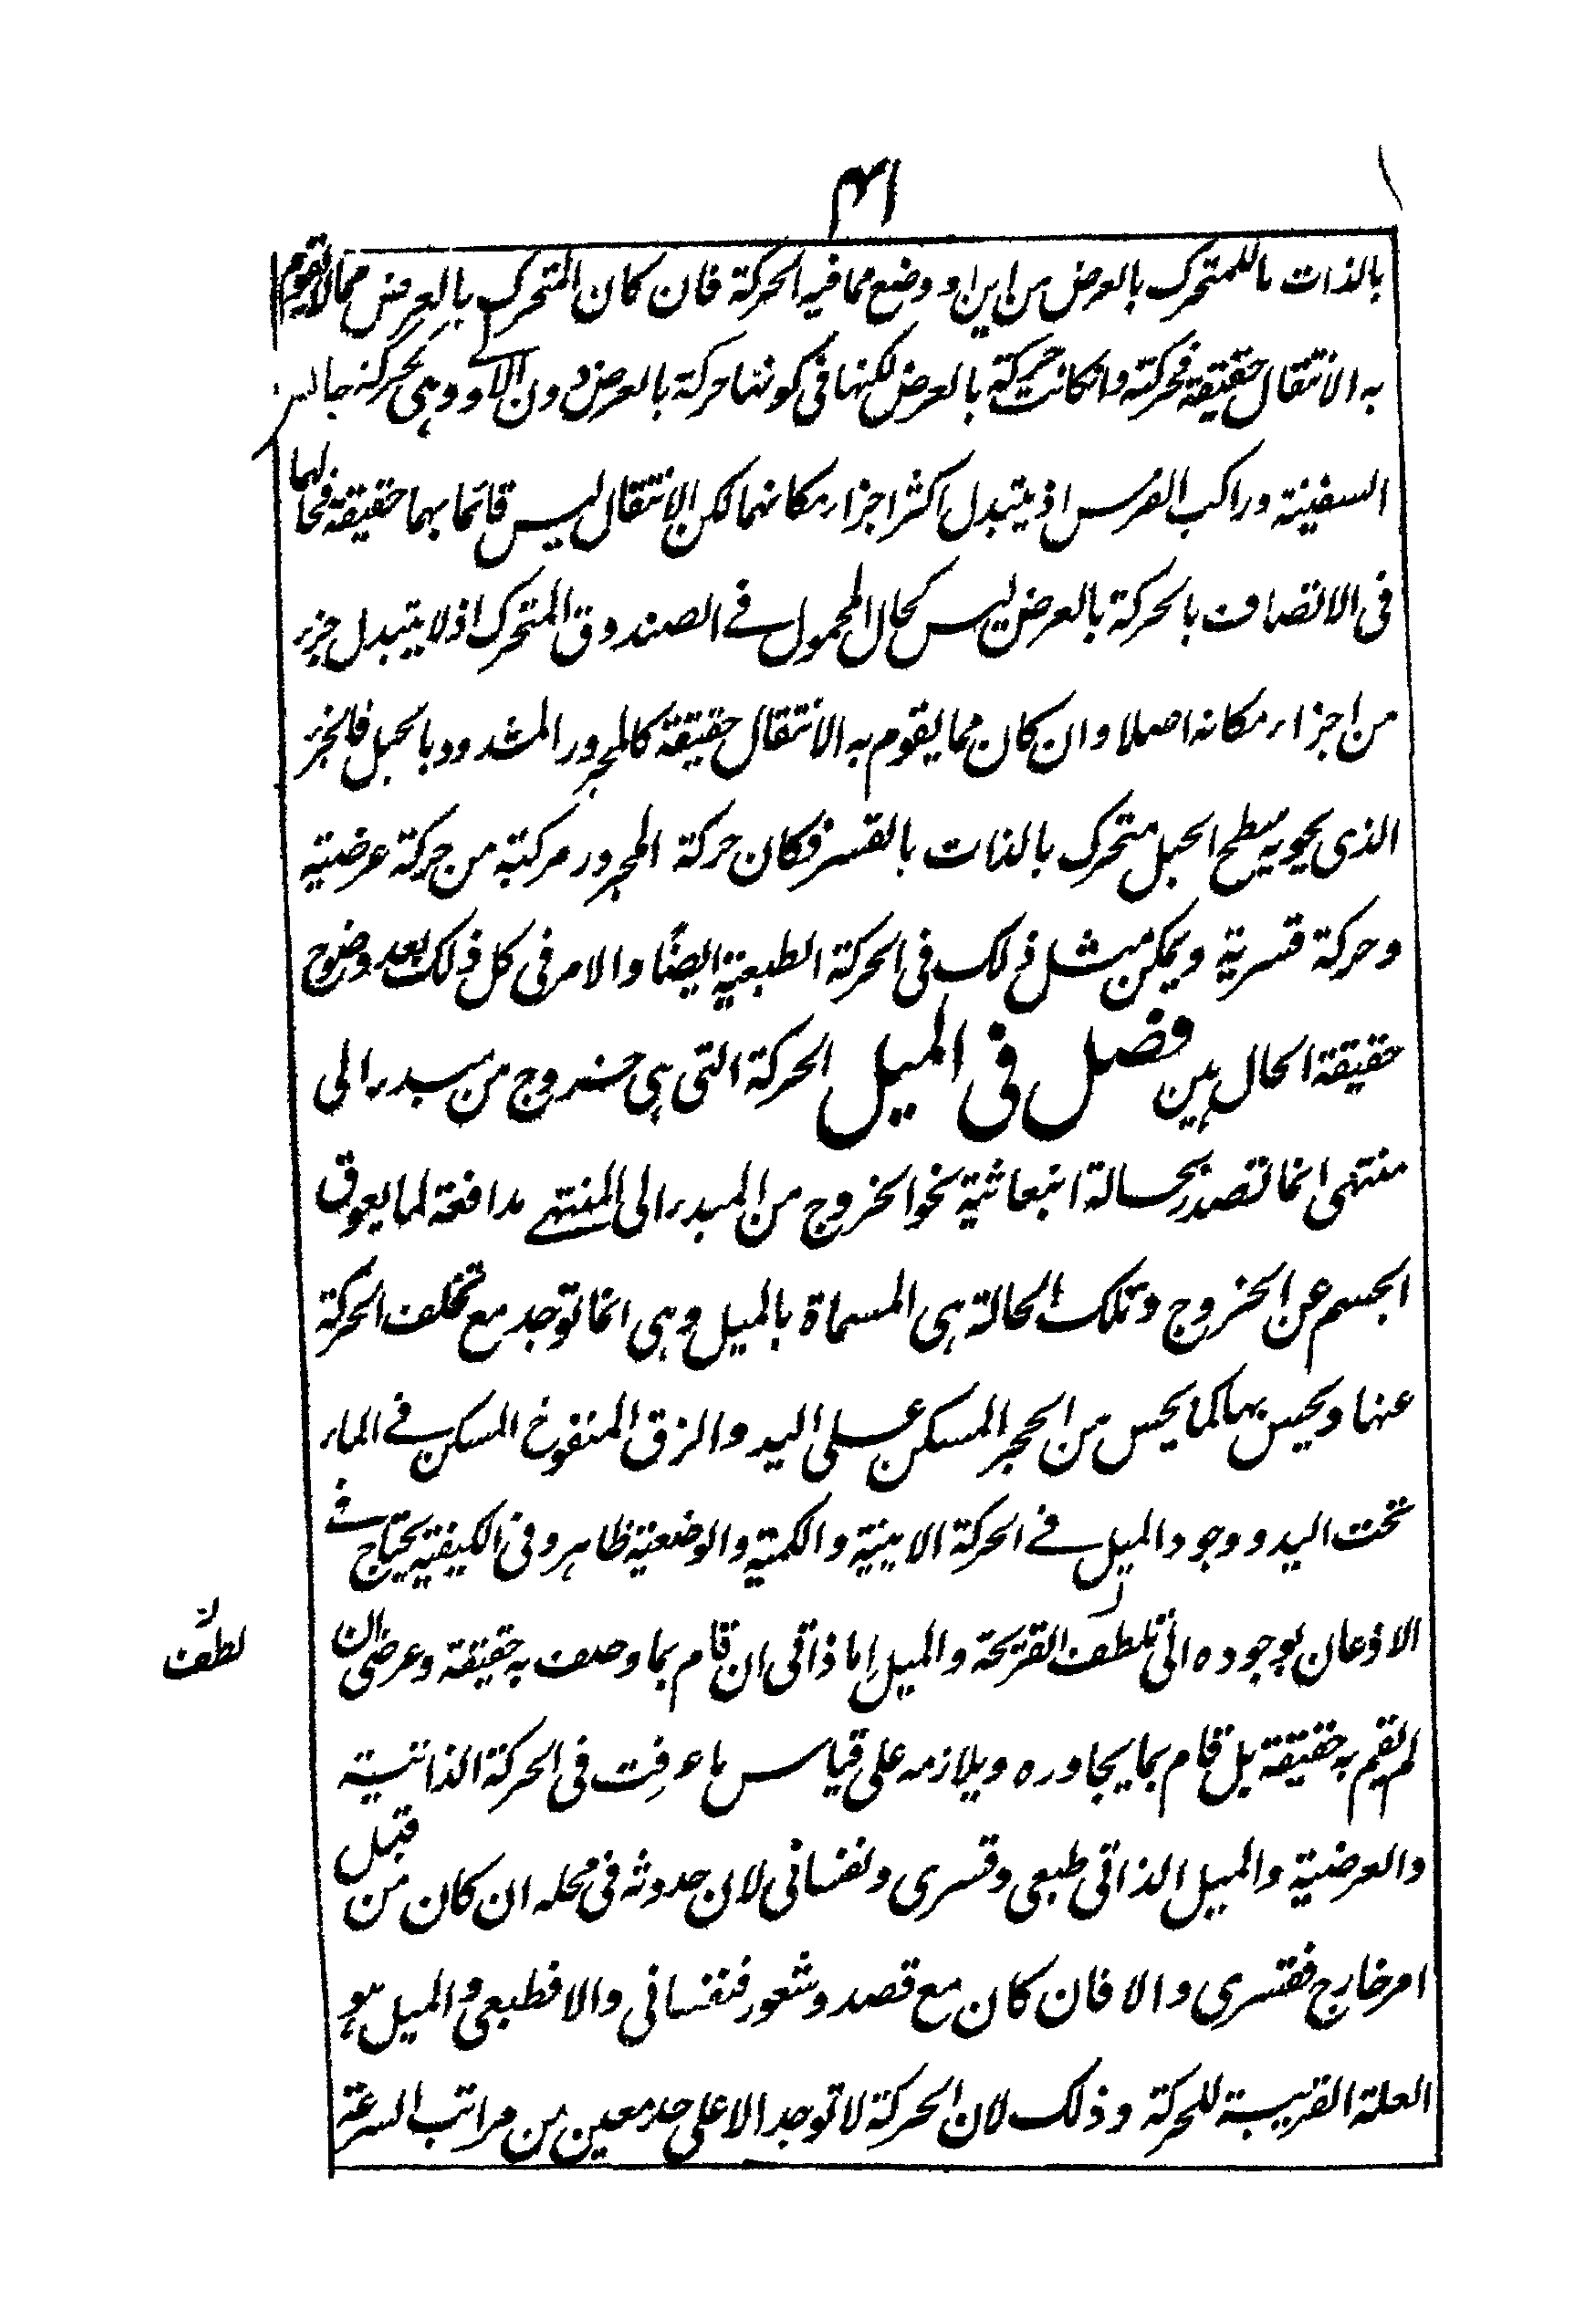 ٤١
بالذات ما للمتحرك بالعرض من اين او وضع مما فيه الحركة فان كان المتحرك بالعرض مما لا يقوم
به الانتقال حقيقة فحركته وانكانت حركة بالعرض لكنها في كونها حركة بالعرض دون الاولى وهي كحركة جالس
السفينة وراكب الفرس اذ يتبدل اكثر اجزاء مكانهما لكن الانتقال ليس قائما بهما حقيقة فحالهما
في الاتصاف بالحركة بالعرض ليس كحال المحمول في الصندوق المتحرك اذ لا يتبدل جزء
من اجزاء مكانه اصلا وان كان مما يقوم به الانتقال حقيقة كالمجرور المشدود بالحبل فالجزء
الذي يحويه سطح الحبل متحرك بالذات بالقسر فكان حركة المجرور مركبة من حركة عرضية
وحركة قسرية ويمكن مثل ذلك في الحركة الطبعية ايضًا والامر في كل ذلك بعد وضوح
حقيقة الحال هين فصل في الميل الحركة التي هي خروج من مبدء الى
منتهى انما تصدر بحالة انبعاثية نحو الخروج من المبدء الى المنتهى مدافعة لما يعوق
الجسم عن الخروج وتلك الحالة هي المسماة بالميل وهي انما توجد مع تخلف الحركة
عنها ويحس بها كما يحس من الحجر المسكن على اليد والزق المنفوخ المسكن في الماء
تحت اليد ووجود الميل في الحركة الاينية والكمية والوضعية ظاهر وفي الكيفية يحتاج في
الاذعان بوجوده الى تلطف القريحة والميل اما ذاتي ان قام بما وصف به حقيقة وعرضي ان
لم يقم به حقيقة بل قام بما يجاوره ويلازمه على قياس ما عرفت في الحركة الذاتية
والعرضية والميل الذاتي طبعي وقسري ونفساني لان حدوثه في محله ان كان من قبل
امر خارج فقسري والا فان كان مع قصد وشعور فنفساني والا فطبعي والميل هو
العلة القريبة للحركة وذلك لان الحركة لا توجد الا على حد معين من مراتب السرعة
لطف